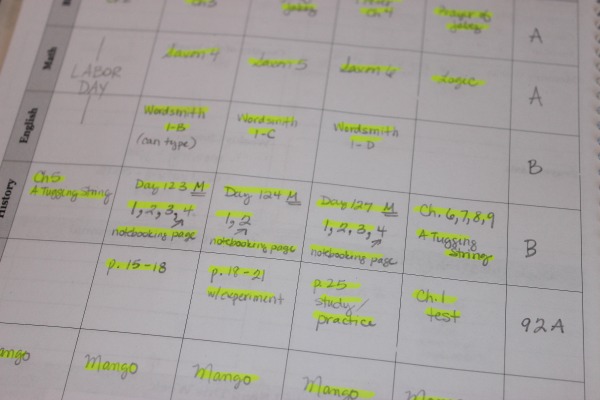 Ch 4
Prayer of
Jabez
A
Math
LABOR
DAY
Lesson 4
Lesson 5
Lesson 6
Logic
A
English
Wordsmith
1-B
(can type)
Wordsmith
1-C
Wordsmith
1-D
B
History
Ch 5
A Tugging String
Day 123 M
1, 2, 3, 4
notebooking page
Day 124 M
1, 2
notebooking page
Day 127 M
1, 2, 3, 4
notebooking page
Ch. 6, 7, 8, 9
A Tugging
String
B
p. 15-18
p. 18-21
w/experiment
p. 25
study/
practice
Ch. 1
test
92 A
Mango
Mango
Mango